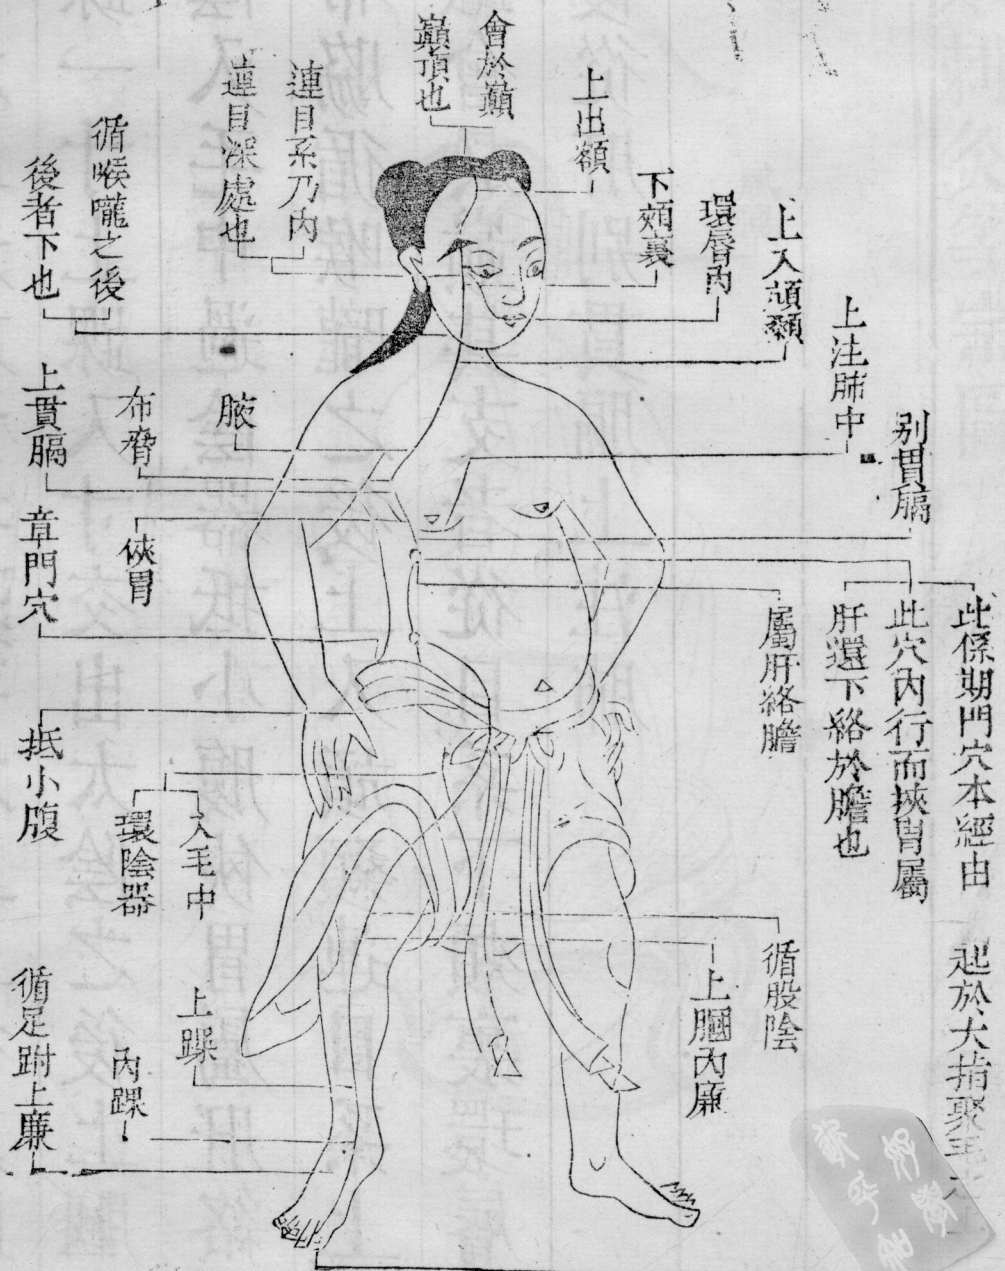 會於巔
巔頂也
上出額
下頰裏
環唇內
上入頏顙
上注肺中
別貫膈
此係期門穴本經由
此穴內行而挾胃屬
肝還下絡於膽也
屬肝絡膽
起於大指聚毛之
循股陰
上膕內廉
連目系乃內
連目深處也
循喉嚨之後
後者下也
腋
布脅
上貫膈
俠胃
章門穴
抵小腹
入毛中
環陰器
上踝
內踝
循足跗上廉